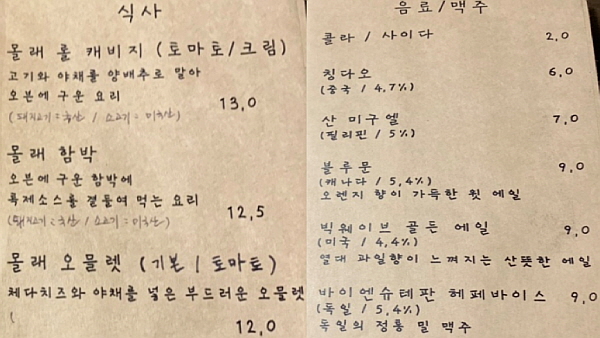 식사
몰래 롤 캐비지 (토마토/크림)
고기와 야채를 양배추로 말아
오븐에 구운 요리
13,0
(돼지고기 : 국산 / 소고기 : 미국산)
몰래 함박
오븐에 구운 함박에
특제소스를 곁들여 먹는 요리
(돼지고기 : 국산 / 소고기 : 미국산)
12,5
몰래 오믈렛 (기본 | 토마토)
체다치즈와 야채를 넣은 부드러운 오믈렛
(
12,0
음료/맥주
콜라 / 사이다 2,0
칭다오 6,0
(중국 / 4,7%)
산 미구엘 7,0
(필리핀 / 5%)
블루문 9,0
(캐나다 / 5,4%)
오렌지 향이 가득한 윗 에일
빅웨이브 골든 에일 9,0
(미국 / 4,4%)
열대 과일향이 느껴지는 산뜻한 에일
바이엔슈테판 헤페바이스 9,0
(독일 / 5,4%)
독일의 정통 밀 맥주